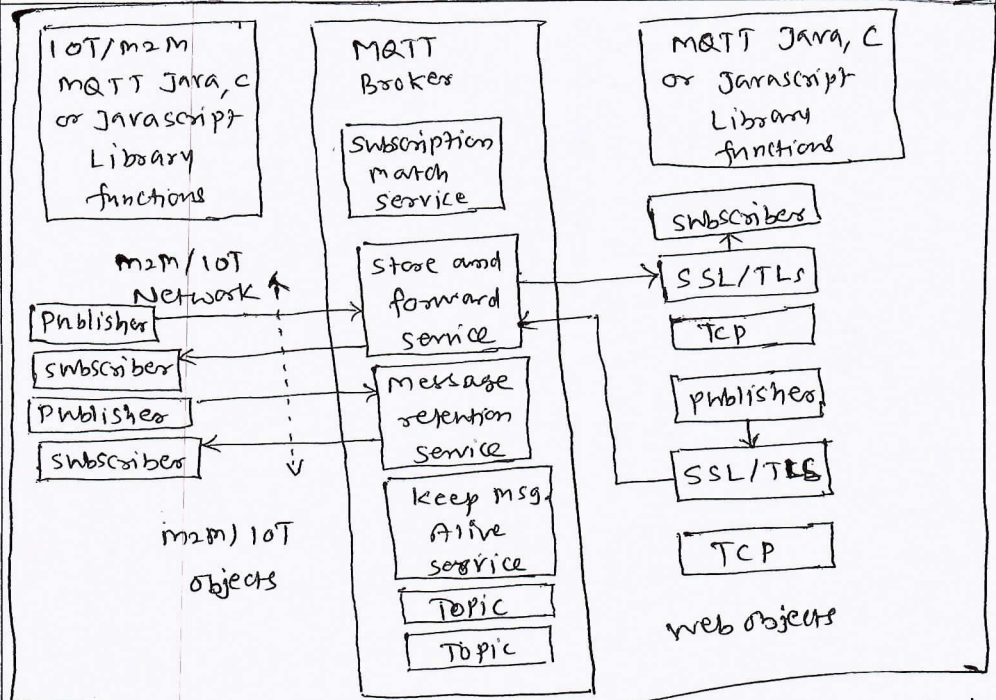 IOT/M2M
MQTT Java, C
or Javascript
Library
functions
M2M/IOT
Network
Publisher
Subscriber
Publisher
Subscriber
M2M/IOT
Objects
MQTT
Broker
Subscription
match
service
Store and
forward
service
Message
retention
service
Keep msg.
Alive
service
Topic
Topic
MQTT Java, C
or Javascript
Library
functions
Subscriber
SSL/TLS
TCP
Publisher
SSL/TLS
TCP
Web objects